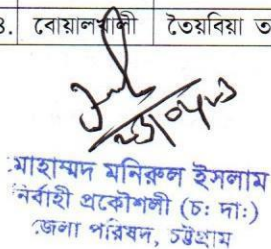 ৪. বোয়ালখালী তৈয়বিয়া ত
মোহাম্মদ মনিরুল ইসলাম
নির্বাহী প্রকৌশলী (চ: দা:)
জেলা পরিষদ, চট্টগ্রাম